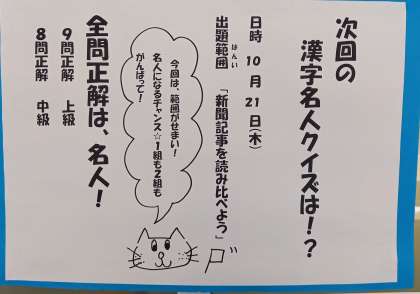 次回の
漢字名人クイズは！？
日時 10月21日(木)
出題範囲 「新聞記事を読み比べよう」
はんい
今回は、範囲がせまい！
名人になるチャンス☆1組も2組も
がんばって！
全問正解は、名人！
9問正解 上級
8問正解 中級